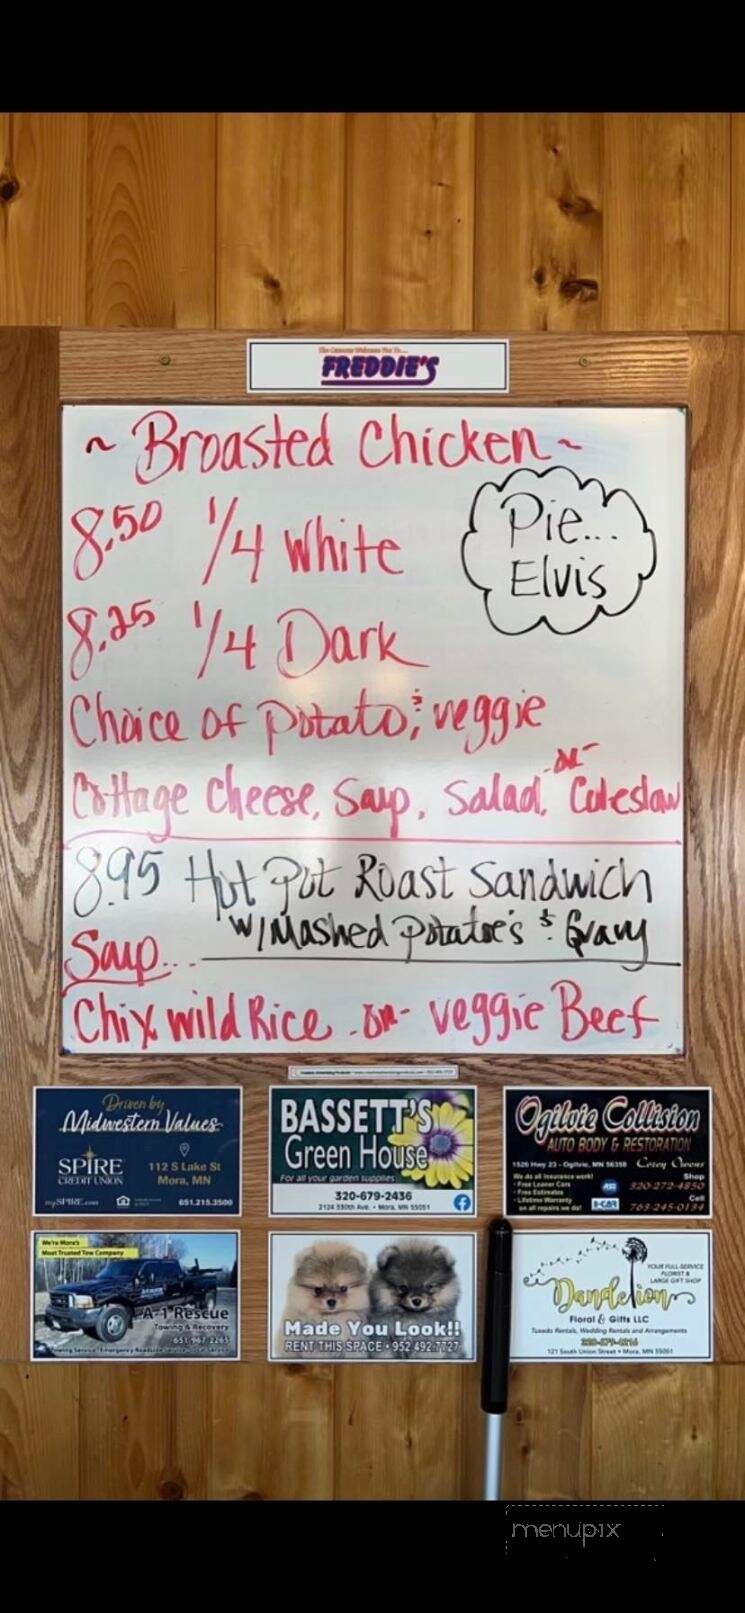 FREDDIE'S
~ Broasted Chicken ~
8.50 1/4 White
Pie...
Elvis
8.25 1/4 Dark
Choice of Potato, & veggie
-or-
Cottage Cheese, Soup, Salad, Coleslaw
8.95 Hot Pot Roast Sandwich
w/Mashed Potatoe's & Gravy
Soup...
Chix Wild Rice -or- Veggie Beef
Driven by
Midwestern Values
SPIRE
CREDIT UNION
112 S Lake St
Mora, MN
mySPIRE.com
651.215.3500
BASSETT'S
Green House
For all your garden supplies
320-679-2436
2124 330th Ave. • Mora, MN 55051
Ogilvie Collision
AUTO BODY & RESTORATION
1520 Hwy 23 - Ogilvie, MN 56358 Corey Owens
We do all insurance work!
• Free Loaner Cars
• Free Estimates
• Lifetime Warranty
on all repairs we do!
Shop
320-272-4850
Cell
763-245-0134
We're Mora's
Most Trusted Tow Company
A-1 Rescue
Towing & Recovery
651-967-2265
Made You Look!!
RENT THIS SPACE • 952 492.7727
YOUR FULL-SERVICE
FLORIST &
LARGE GIFT SHOP
Dandelion
Floral & Gifts LLC
Tuxedo Rentals, Wedding Rentals and Arrangements
121 South Union Street • Mora, MN 55051
menupix